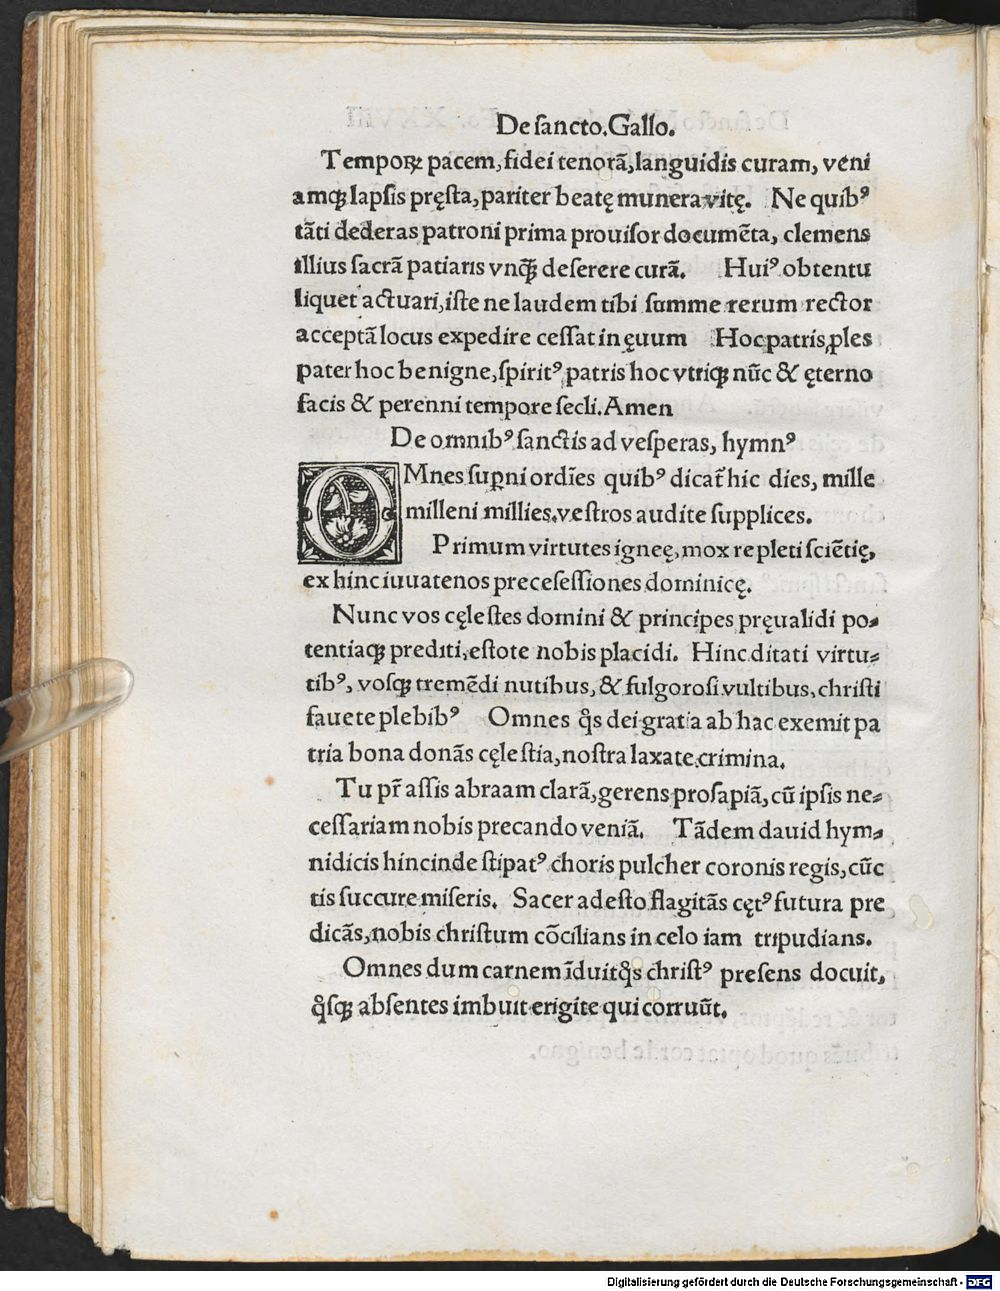 De sancto. Gallo.
Temporꝝ pacem, fidei tenorā, languidis curam, veni
amqꝫ lapsis pręsta, pariter beatę munera vitę. Ne quibꝰ
tāti dederas patroni prima prouisor documēta, clemens
illius sacrā patiaris vnqꝫ̄ deserere curā. Huiꝰ obtentu
liquet actuari, iste ne laudem tibi summe rerum rector
acceptā locus expedire cessat in ęuum Hoc patris ꝓles
pater hoc benigne, spiritꝰ patris hoc vtriqꝫ nūc & ęterno
facis & perenni tempore secli. Amen
De omnibꝰ sanctis ad vesperas, hymnꝰ
OMnes suꝑni ordīes quibꝰ dicat̄ hic dies, mille
milleni millies, vestros audite supplices.
Primum virtutes igneę, mox repleti sciētię,
ex hinc iuuate nos preces sessiones dominicę.
Nunc vos cęlestes domini & principes pręualidi po-
tentiaqꝫ prediti, estote nobis placidi. Hinc ditati virtu-
tibꝰ, vosqꝫ tremēdi nutibus, & fulgorosi vultibus, christi
fauete plebibꝰ Omnes q̊s dei gratia ab hac exemit pa
tria bona donās cęlestia, nostra laxate crimina.
Tu pr̄ assis abraam clarā, gerens prosapiā, cū ipsis ne-
cessariam nobis precando veniā. Tādem dauid hym-
nidicis hincinde stipatꝰ choris pulcher coronis regis, cūc
tis succure miseris. Sacer adesto flagitās cętꝰ futura pre
dicās, nobis christum cōcilians in celo iam tripudians.
Omnes dum carnem īduit q̊s christꝰ presens docuit,
q̊sqꝫ absentes imbuit erigite qui corruūt.
Digitalisierung gefördert durch die Deutsche Forschungsgemeinschaft - DFG